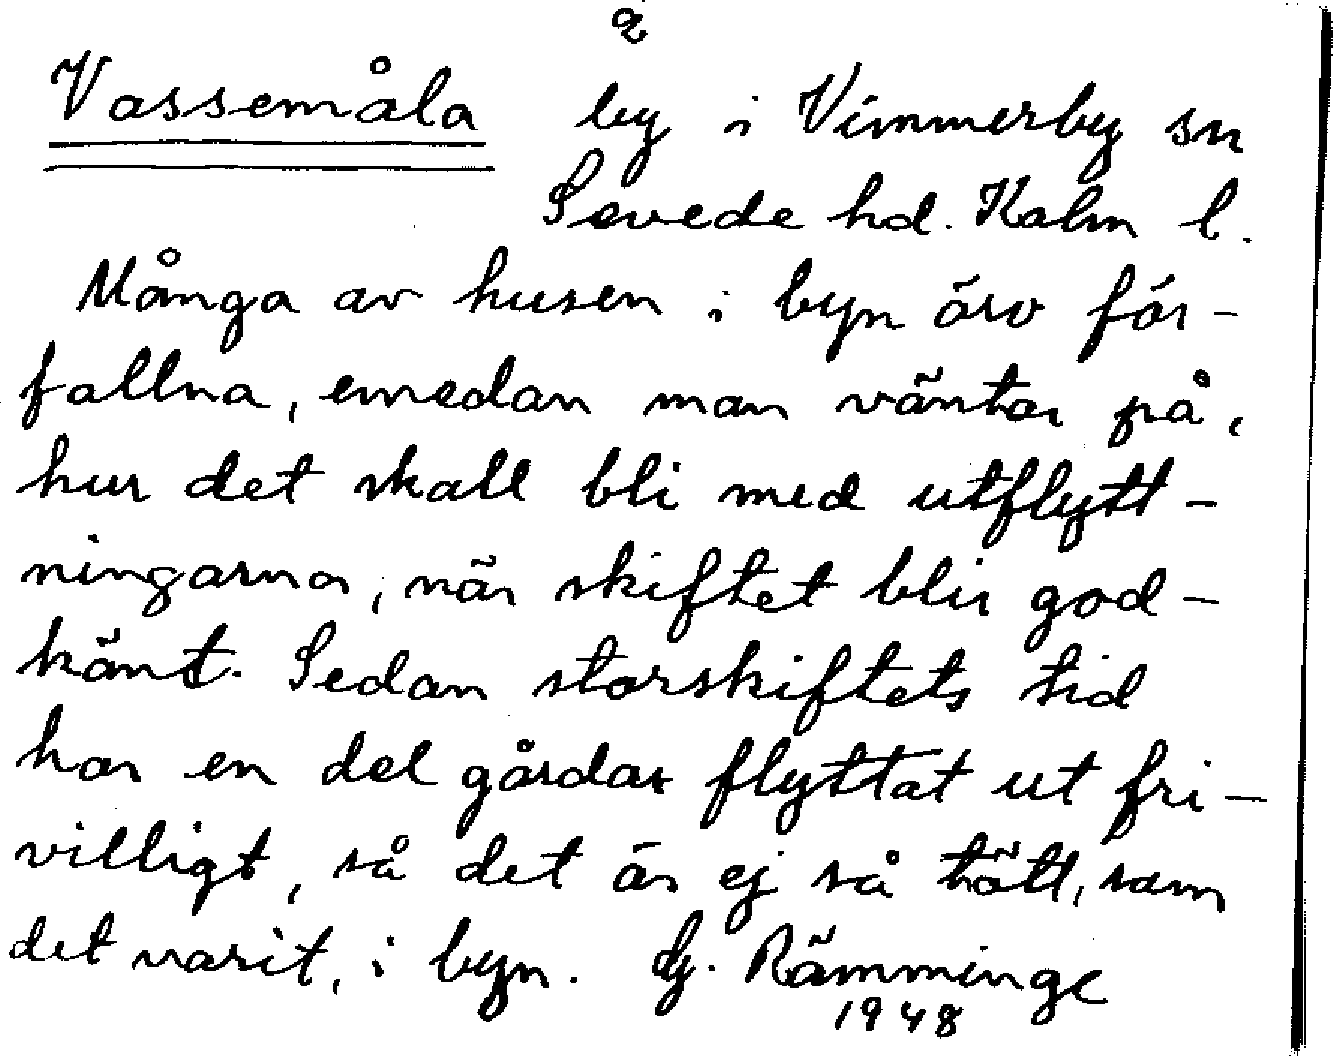 2
Vassemåla by i Vimmerby sn
Sevede hd. Kalm l.
Många av husen i byn äro för-
fallna, emedan man väntar på,
hur det skall bli med utflytt-
ningarna, när skiftet blir god-
känt. Sedan storskiftets tid
har en del gårdar flyttat ut fri-
villigt, så det är ej så tätt, som
det varit, i byn. G. Rämminge
1948